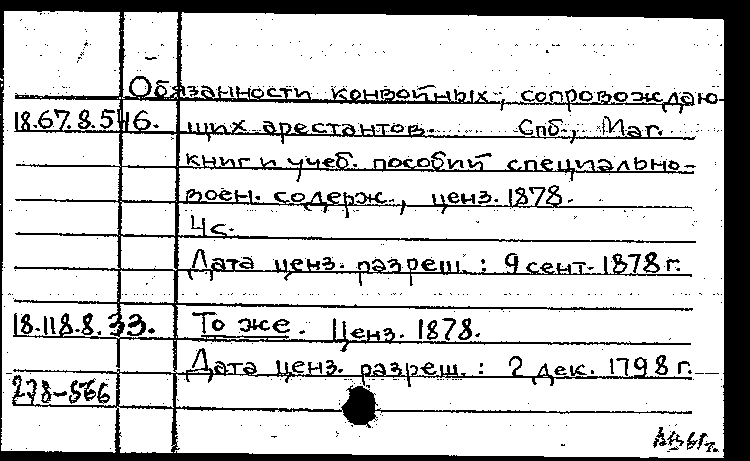 Обязанности конвойных, сопровождаю-
18.67.8.546. щих арестантов. Спб., Маг.
книг и учеб. пособий специально-
воен. содерж., ценз. 1878.
4 с.
Дата ценз. разреш.: 9 сент. 1878 г.
18.118.8.33. То же. Ценз. 1878.
Дата ценз. разреш.: 2 дек. 1798 г.
278-566